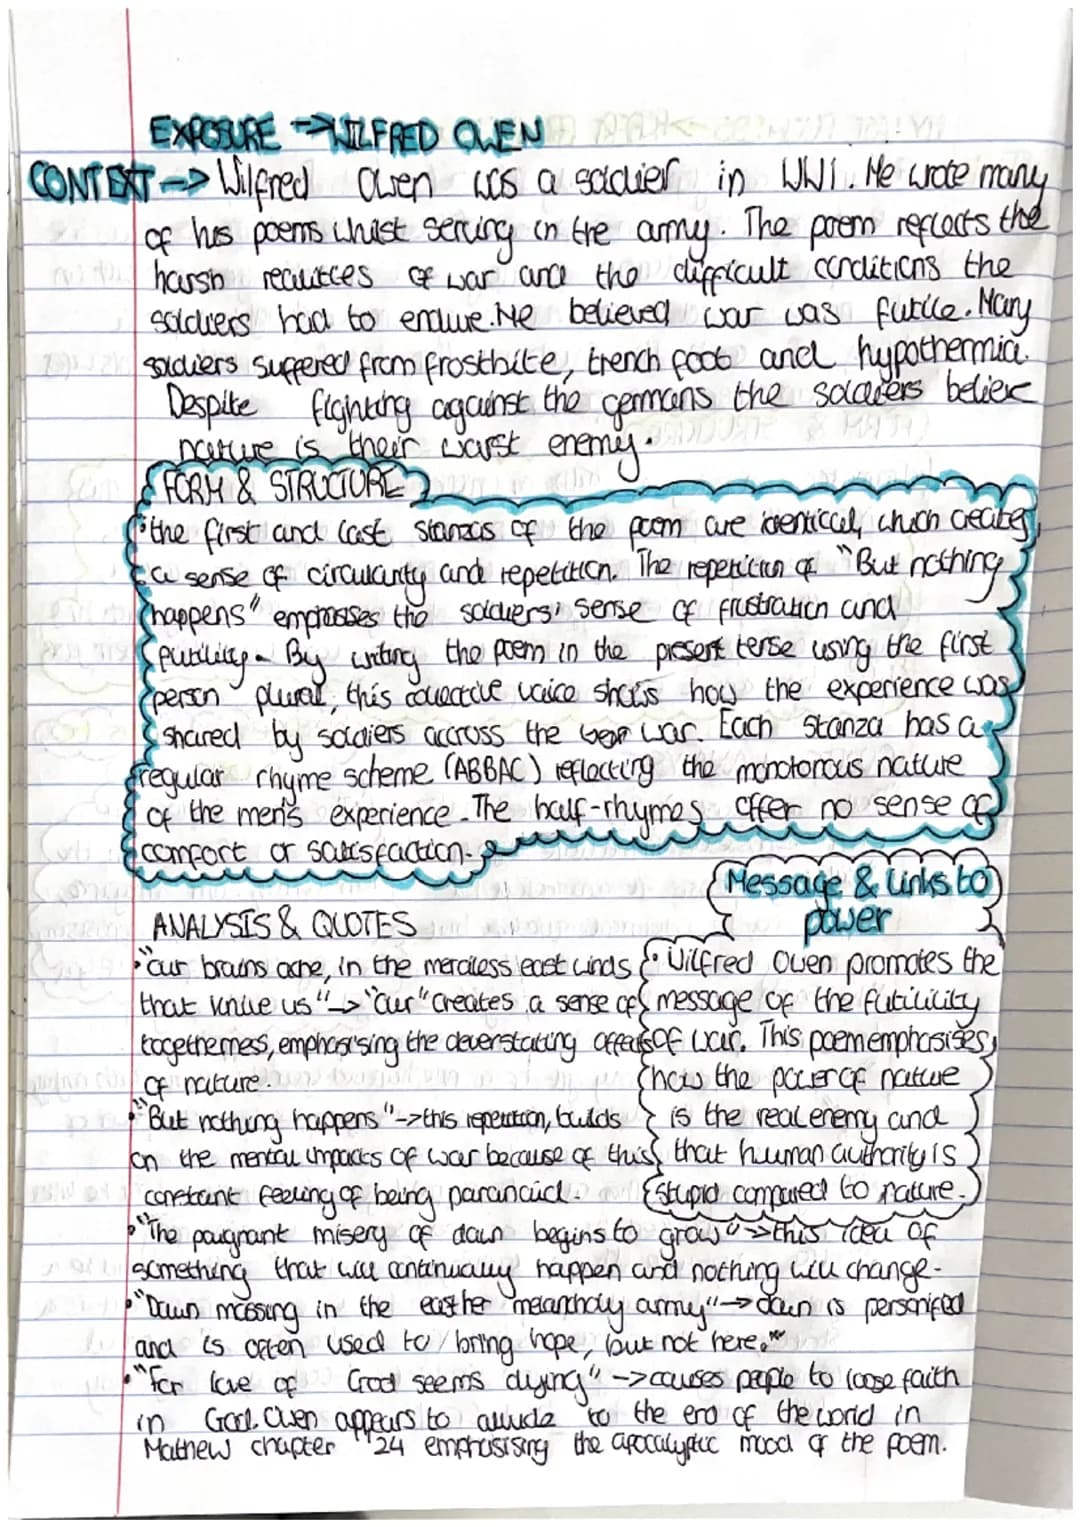 EXPOSURE → WILFRED OWEN
CONTEXT → Wilfred Owen was a soldier in WW1. He wrote many
of his poems whilst serving in the army. The poem reflects the
harsh realities of war and the difficult conditions the
soldiers had to endure. He believed war was futile. Many
soldiers suffered from frostbite, trench foot and hypothermia.
Despite fighting against the germans the soldiers believe
nature is their worst enemy.
FORM & STRUCTURE
• the first and last stanzas of the poem are identical, which creates
a sense of circularity and repetition. The repetition of "But nothing
happens" emphasises the soldiers' sense of frustration and
futility. By writing the poem in the present tense using the first
person plural, this collective voice shows how the experience was
shared by soldiers accross the war. Each stanza has a
regular rhyme scheme (ABBAC) reflecting the monotonous nature
of the men's experience. The half-rhymes offer no sense of
comfort or satisfaction.
ANALYSIS & QUOTES
• "our brains ache, in the merciless east winds
that knive us" → "our" creates a sense of
togetherness, emphasising the deverstating affects
of nature.
• "But nothing happens" → this repetition, builds
on the mental impacts of war because of this
constant feeling of being paranoid.
Message & Links to
power
• Wilfred Owen promotes the
message of the futility
of war. This poem emphasises
how the power of nature
is the real enemy and
that human authority is
stupid compared to nature.
• "The poignant misery of dawn begins to grow" → this idea of
something that will continually happen and nothing will change.
• "Dawn massing in the east her melancholy army" → dawn is personified
and is often used to bring hope, but not here.
• "For love of God seems dying" → causes people to loose faith
in God. Owen appears to allude to the end of the world in
Mathew chapter 24 emphasising the apocalyptic mood of the poem.